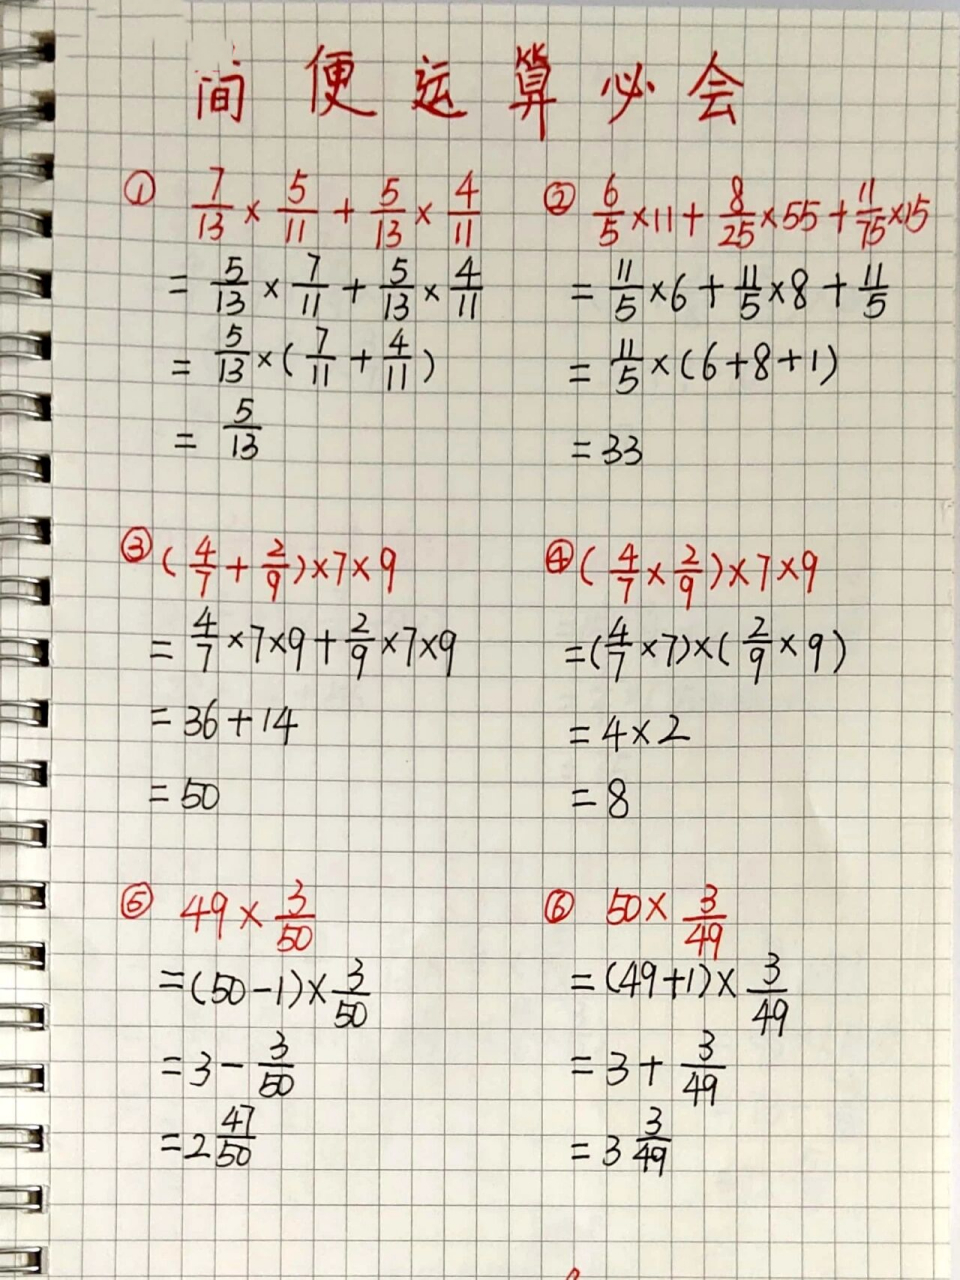 简便运算必会
① 7/13 × 5/11 + 5/13 × 4/11
= 5/13 × 7/11 + 5/13 × 4/11
= 5/13 × (7/11 + 4/11)
= 5/13
② 6/5 × 11 + 8/25 × 55 + 11/75 × 15
= 11/5 × 6 + 11/5 × 8 + 11/5
= 11/5 × (6 + 8 + 1)
= 33
③ (4/7 + 2/9) × 7 × 9
= 4/7 × 7 × 9 + 2/9 × 7 × 9
= 36 + 14
= 50
④ (4/7 × 2/9) × 7 × 9
= (4/7 × 7) × (2/9 × 9)
= 4 × 2
= 8
⑤ 49 × 3/50
= (50 - 1) × 3/50
= 3 - 3/50
= 2 47/50
⑥ 50 × 3/49
= (49 + 1) × 3/49
= 3 + 3/49
= 3 3/49